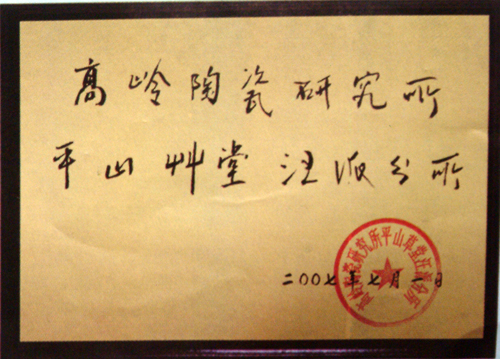 高岭陶瓷研究所
平山艸堂汪派分所
二00七年七月一日
高岭陶瓷研究所平山草堂汪派分所